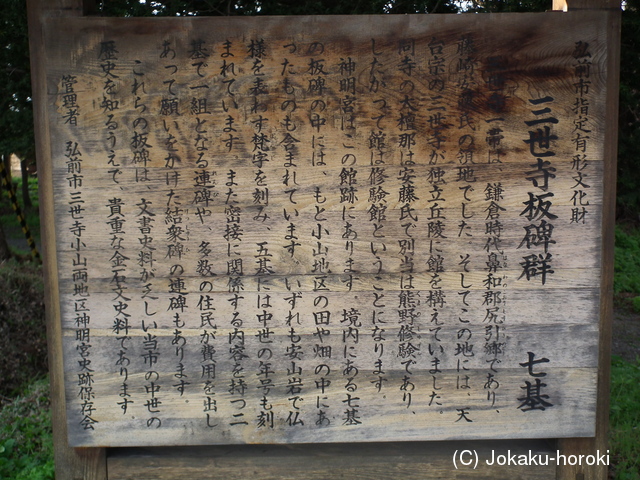 弘前市指定有形文化財
三世寺板碑群　七基
一帯は、鎌倉時代鼻和郡尻引郷であり、
藤崎安藤氏の領地でした。そしてこの地には、天
台宗の三世寺が独立丘陵に館を構えていました。
同寺の大檀那は安藤氏で別当は熊野修験であり、
したがって館は修験館ということになります。
神明宮はこの館跡にあります。境内にある七基
の板碑の中には、もと小山地区の田や畑の中にあ
ったものも含まれています。いずれも安山岩で仏
様を表わす梵字を刻み、五基には中世の年号も刻
まれています。また密接に関係する内容を持つ二
基で一組となる連碑や、多数の住民が費用を出し
あって願いをかけた結衆碑の連碑もあります。
これらの板碑は、文書史料が乏しい当市の中世の
歴史を知るうえで、貴重な金石文史料であります。
管理者　弘前市三世寺小山両地区神明宮史跡保存会
(C) Jokaku-horoki